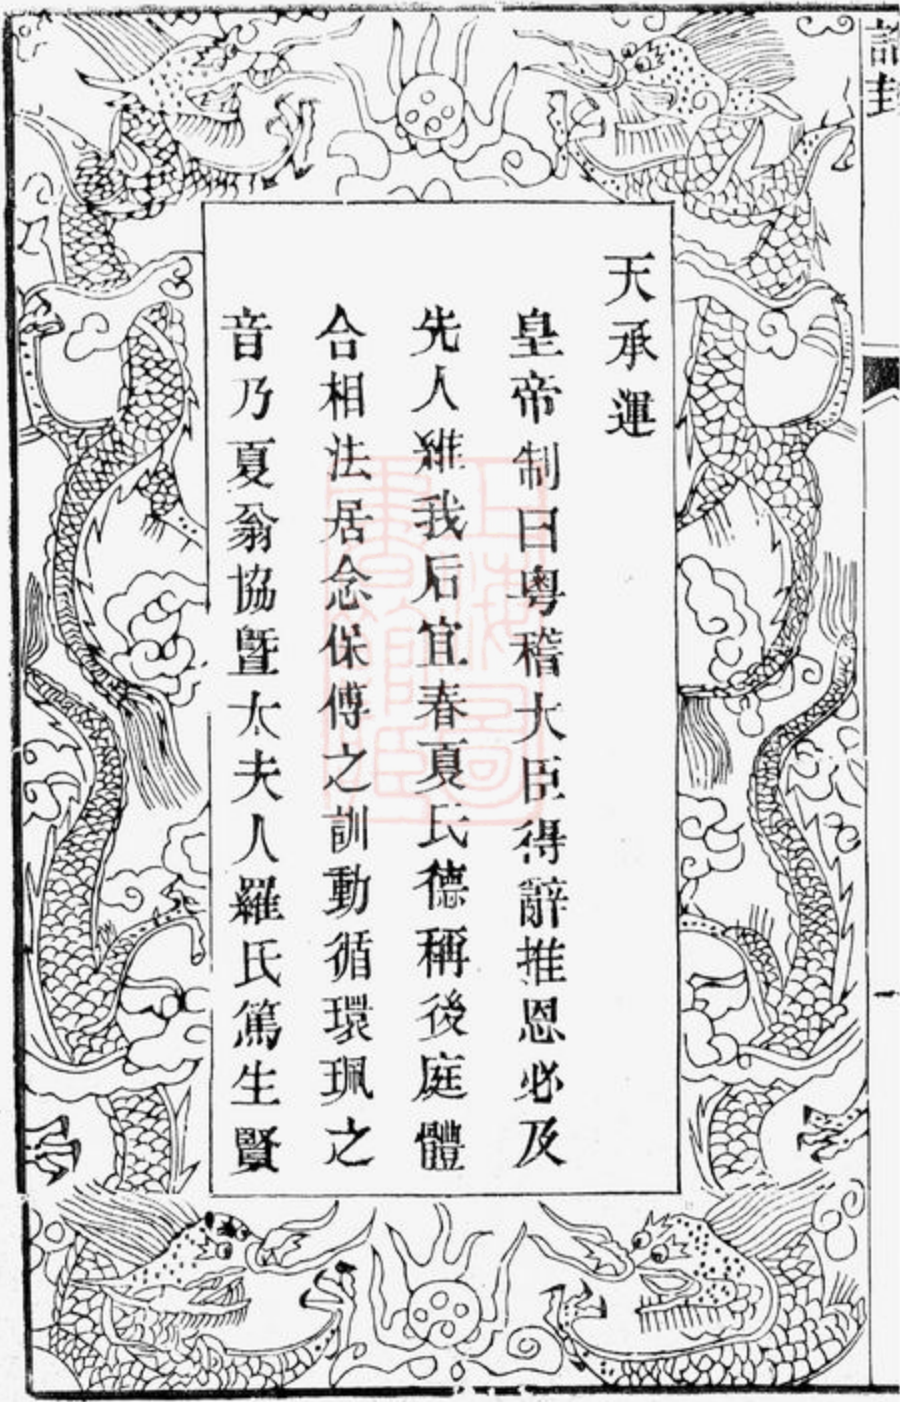 誥封
天承運
皇帝制曰粵稽大臣得辭推恩必及
先人維我后宜春夏氏德稱後庭體
合相法居念保傅之訓動循環珮之
音乃夏翁協曁太夫人羅氏篤生賢
一
上海圖書館藏